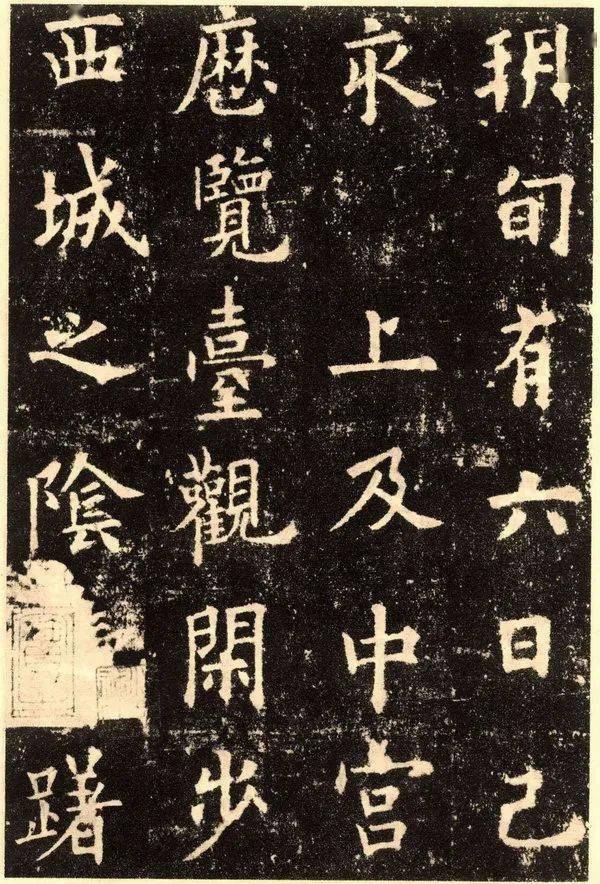 朔旬有六日己
亥上及中宫
歷覽臺觀閑步
西城之陰躇